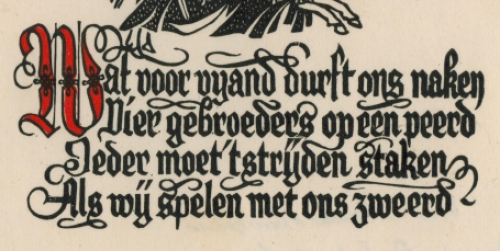 Wat voor vyand durft ons naken
Vier gebroeders op een peerd
Ieder moet 't stryden staken
Als wy spelen met ons zweerd